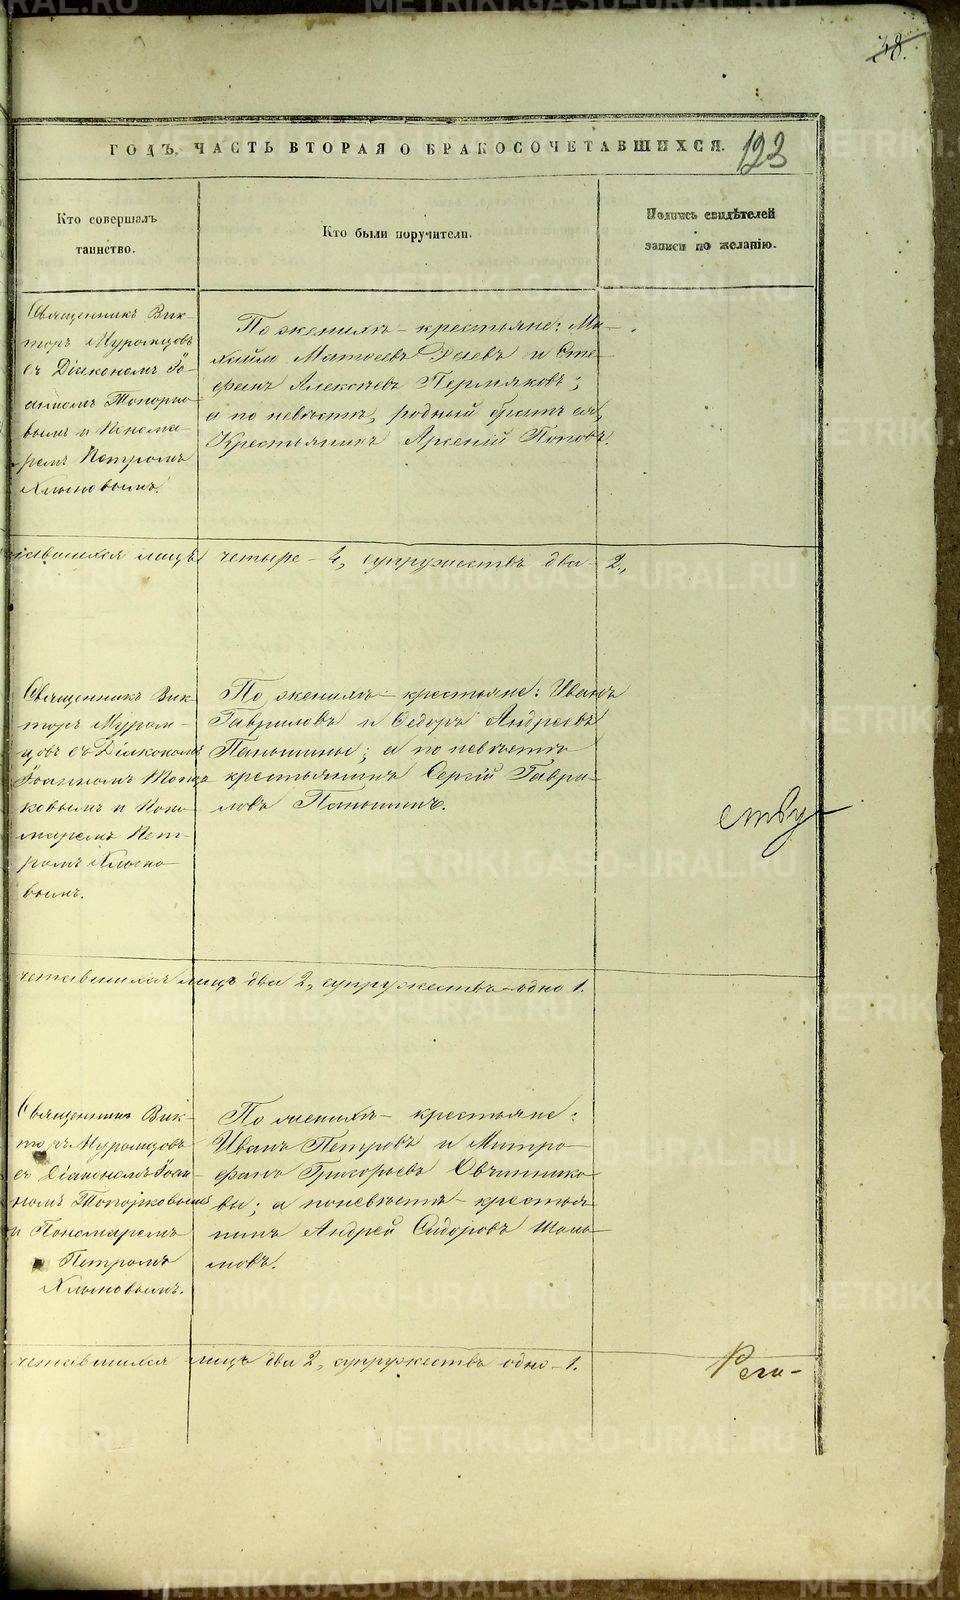 38.
ГОДЪ, ЧАСТЬ ВТОРАЯ О БРАКОСОЧЕТАВШИХСЯ. 123
Кто совершалъ
таинство.
Кто были поручители.
Подпись свидѣтелей
записи по желанію.
Священникъ Вик-
торъ Муромцовъ
съ Діакономъ Іо-
анномъ Топорко-
вымъ и Понома-
ремъ Петромъ
Хлыновымъ.
По женихѣ – крестьяне: Ми-
хайло Матѳеевъ и Сте-
фанъ Алексѣевъ Пермяковъ;
а по невѣстѣ, родный братъ ея,
Крестьянинъ Арсеній Поповъ.
тавшихся лицъ четыре – 4, супружествъ два – 2.
Священникъ Вик-
торъ Муром-
цовъ съ Діакономъ
Іоанномъ Топор-
ковымъ и Поно-
маремъ Пет-
ромъ Хлыно-
вымъ.
По женихѣ – крестьяне: Иванъ
Гавриловъ и Ѳедоръ Андреевъ
Паньшины; а по невѣстѣ
крестьянинъ Сергій Гаври-
ловъ Паньшинъ.
ству
четавшихся лицъ два 2, супружествъ – одно 1.
Священникъ Вик-
торъ Муромцовъ
съ Діакономъ Іоан-
номъ Топорковымъ
и Пономаремъ
Петромъ
Хлыновымъ.
По женихѣ – крестьяне:
Иванъ Петровъ и Митро-
фанъ Григорьевъ Овчиннико-
вы; а по невѣстѣ – крестья-
нинъ Андрей Сидоровъ
четавшихся лицъ два 2, супружествъ одно – 1.
METRIKI.GASO-URAL.RU